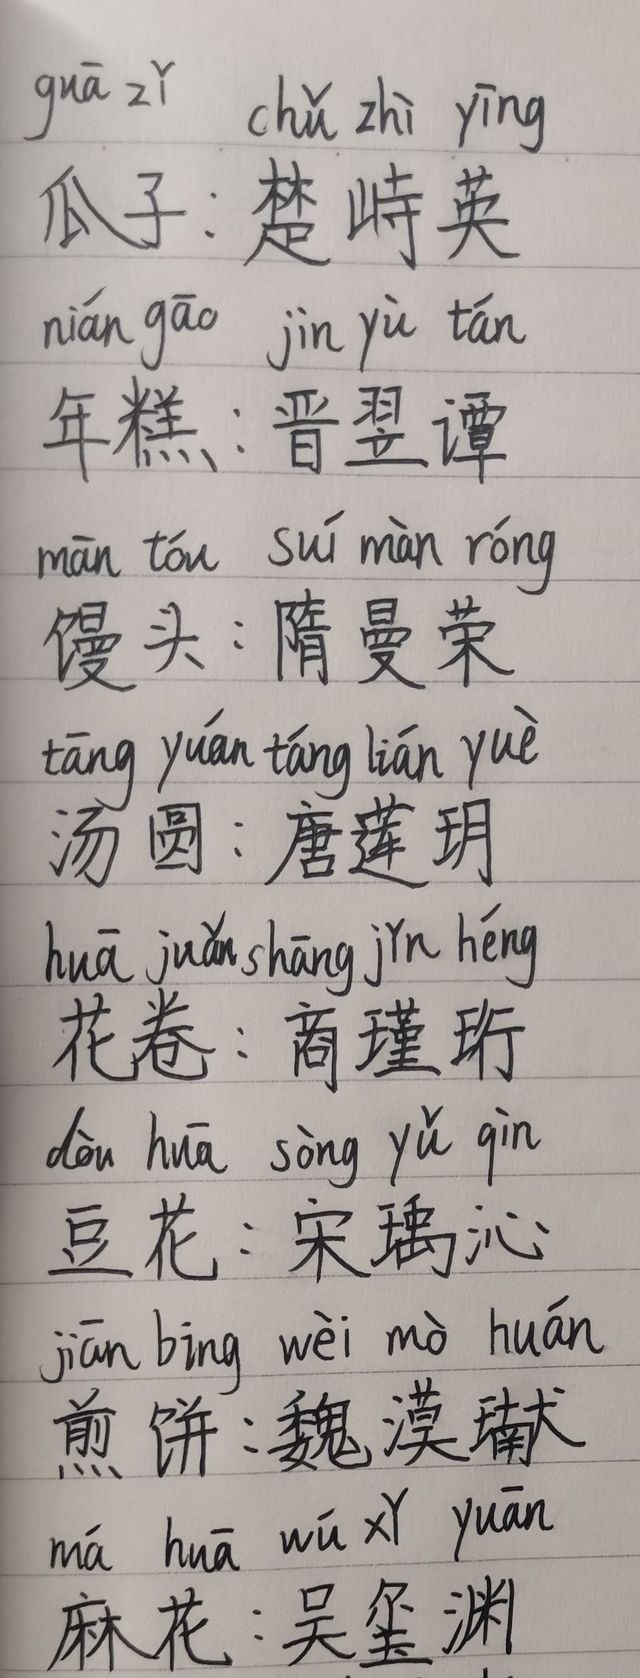 guā zǐ chǔ zhì yīng
瓜子：楚峙英
nián gāo jìn yù tán
年糕：晋翌谭
mān tóu suí màn róng
馒头：隋曼荣
tāng yuán táng lián yuè
汤圆：唐莲玥
huā juǎn shāng jǐn héng
花卷：商瑾珩
dòu huā sòng yǔ qìn
豆花：宋瑀沁
jiān bing wèi mò huán
煎饼：魏漠瓛
má huā wú xǐ yuān
麻花：吴玺渊